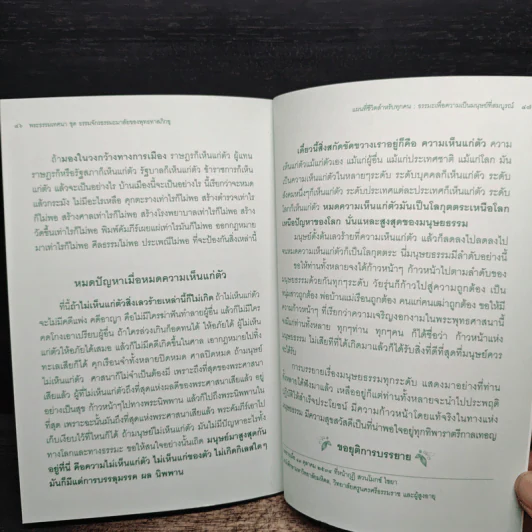 ๔๖ พระธรรมเทศนา ชุด ธรรมจักรธรรมะมาสัยของพุทธทาสภิกขุ
ถ้ามองในวงกว้างทางการเมือง ราษฎรก็เห็นแก่ตัว ผู้แทน
ราษฎรหรือรัฐสภาก็เห็นแก่ตัว รัฐบาลก็เห็นแก่ตัว ข้าราชการก็เห็น
แก่ตัว แล้วจะเป็นอย่างไร บ้านเมืองนี้จะเป็นอย่างไร นี้เรียกว่าจะหมด
แล้วกระมัง ไม่มีอะไรเหลือ คุกตะรางเท่าไรก็ไม่พอ สร้างตำรวจเท่าไร
ก็ไม่พอ สร้างศาลเท่าไรก็ไม่พอ สร้างโรงพยาบาลเท่าไรก็ไม่พอ สร้าง
วัดขึ้นเท่าไรก็ไม่พอ พิมพ์คัมภีร์เผยแผ่เท่าไรมันก็ไม่พอ ออกกฎหมาย
มาเท่าไรก็ไม่พอ ศีลธรรมไม่พอ ประเพณีไม่พอ ที่จะป้องกันสิ่งเหล่านี้
หมดปัญหาเมื่อหมดความเห็นแก่ตัว
ที่นี้ถ้าไม่เห็นแก่ตัวสิ่งเลวร้ายเหล่านี้ก็ไม่เกิด ถ้าไม่เห็นแก่ตัว
จะไม่มีคดีแพ่ง คดีอาญา คือไม่มีใครฆ่าฟันทำลายผู้อื่น แล้วก็ไม่มีใคร
คดโกงเอาเปรียบผู้อื่น ถ้าใครล่วงเกินก็อดทนได้ ให้อภัยได้ ผู้ไม่เห็น
แก่ตัวให้อภัยได้เสมอ แล้วก็ไม่มีคดีเกิดขึ้นในศาล เอากฎหมายไปทิ้ง
ทะเลเสียก็ได้ คุกเรือนจำทั้งหลายปิดหมด ศาลปิดหมด ถ้ามนุษย์
ไม่เห็นแก่ตัว ศาสนาก็ไม่จำเป็นต้องมี เพราะว่าถึงที่สุดของพระศาสนา
เสียแล้ว ผู้ที่ไม่เห็นแก่ตัวนี้ถึงที่สุดแห่งผลของพระศาสนาเสียแล้ว อยู่
อย่างเป็นสุข ก้าวหน้าๆไปทางพระนิพพาน แล้วก็ไปถึงพระนิพพานใน
ที่สุด เพราะฉะนั้นมันถึงที่สุดแห่งพระศาสนาเสียแล้ว พระคัมภีร์เอาไป
เก็บเงียบไว้ที่ไหนก็ได้ ถ้ามนุษย์ไม่เห็นแก่ตัว มันไม่มีปัญหาอะไรทั้ง
ทางโลกและทางธรรมะ ขอให้สนใจอย่างนั้นเถิด มนุษย์มาสูงสุดกัน
อยู่ที่นี่ คือความไม่เห็นแก่ตัว ไม่เห็นแก่ของตัว ไม่เกิดกิเลสใดๆ
มันก็มีแต่การบรรลุมรรค ผล นิพพาน
แผนที่ชีวิตสำหรับทุกคน : ธรรมะเพื่อความเป็นมนุษย์ที่สมบูรณ์
เดี๋ยวนี้สิ่งสกัดขัดขวางเราอยู่ก็คือ ความเห็นแก่ตัว ความเห็น
แก่ตัวแม้แก่ตัวเอง แม้แก่ผู้อื่น แม้แก่ประเทศชาติ แม้แก่โลก มัน
เป็นความเห็นแก่ตัวในหลายๆระดับ ระดับบุคคลก็เห็นแก่ตัว ระดับ
สังคมหนึ่งๆก็เห็นแก่ตัว ระดับประเทศแต่ละประเทศก็เห็นแก่ตัว ระดับ
โลกก็เห็นแก่ตัว หมดความเห็นแก่ตัวมันเป็นโลกุตตระเหนือโลก
เหนือปัญหาของโลก นั่นแหละสูงสุดของมนุษยธรรม
มนุษย์ตั้งต้นเลวร้ายที่ความเห็นแก่ตัว แล้วก็ลดลงไปลดลงไป
จนหมดความเห็นแก่ตัวก็เป็นโลกุตระ นี่มนุษยธรรมมีลำดับอย่างนี้
ขอให้ท่านทั้งหลายจงได้ก้าวหน้าๆ ก้าวหน้าไปตามลำดับของ
มนุษยธรรมด้วยกันทุกๆระดับ วัยรุ่นก็ก้าวไปสู่ความถูกต้อง เป็น
หนุ่มสาวถูกต้อง พ่อบ้านแม่เรือนถูกต้อง คนแก่คนเฒ่าถูกต้อง ขอให้มี
ความก้าวหน้าๆ ที่เรียกว่าความเจริญงอกงามในพระพุทธศาสนานี้
จงมีแก่ท่านทั้งหลาย ทุกๆท่าน ทุกๆคน ก็ได้ชื่อว่า ก้าวหน้าแห่ง
มนุษยธรรม ไม่เสียทีที่ได้เกิดมาแล้วก็ได้รับสิ่งที่ดีที่สุดที่มนุษย์ควร
จะได้รับ
การบรรยายเรื่องมนุษยธรรมทุกระดับ แสดงมาอย่างที่ท่าน
ทั้งหลายได้ฟังมาแล้ว เหลืออยู่ก็แต่ท่านทั้งหลายจะนำไปประพฤติ
ปฏิบัติให้สำเร็จประโยชน์ มีความก้าวหน้าโดยแท้จริงในทางแห่ง
มนุษยธรรม มีความสุขสวัสดีเป็นที่น่าพอใจอยู่ทุกทิพาราตรีกาลเทอญ
ขอยุติการบรรยาย